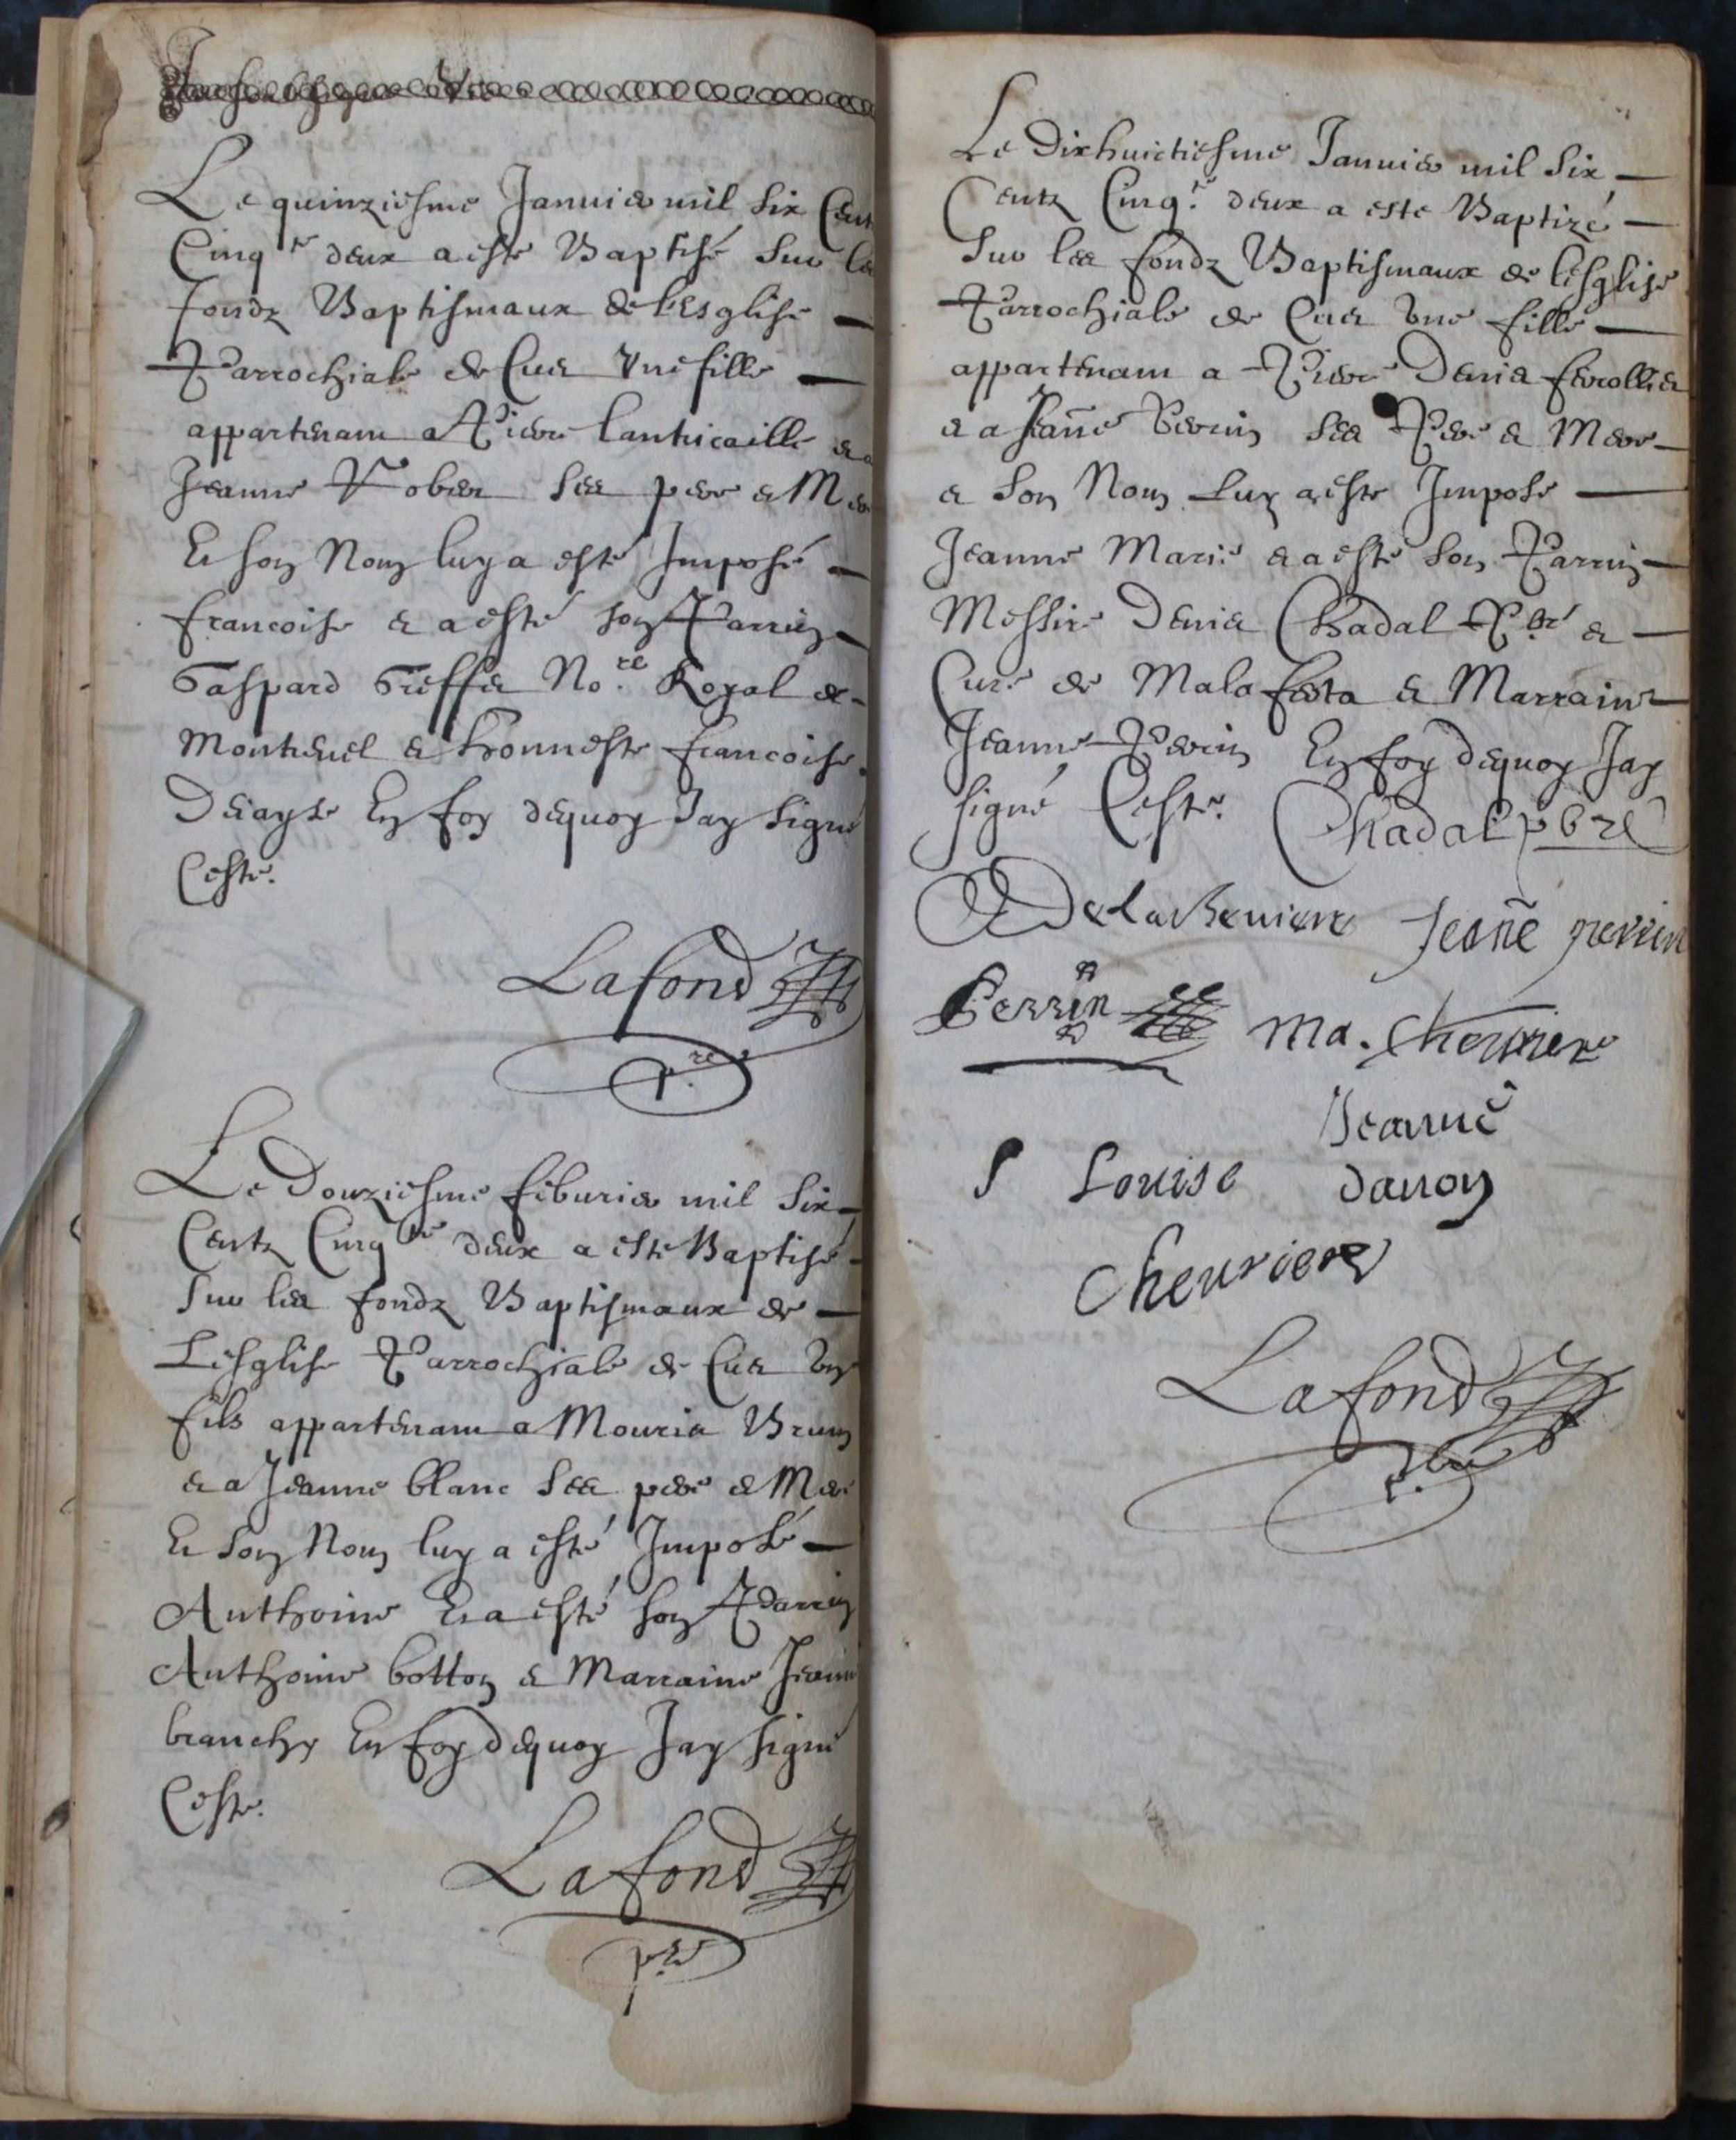 Le quinziesme Januier mil six Cent
Cinq.te deux a este Baptisé sur les
fondz Baptismaux de l'esglise
Parrochiale de Cuet Vne fille
appartenam a Pierre Lanticaille et a
Jeanne Robert ses pere et Mere
Et son Nom luy a esté Imposé
francoise et a esté son Parrin
Gaspard Greffet No.re Royal de
Montreuel et honneste francoise
En foy dequoy Jay signé
Ceste.
Lafond
p.re
Le Douziesme feburier mil six
Centz Cinq.te deux a este Baptisé
sur les fondz Baptismaux de
Lesglise Parrochiale de Cuet Vn
fils appartenam a Mouris Brun
et a Jeanne blanc ses pere et Mere
Et son Nom luy a esté Imposé
Anthoine Et a esté son Parrin
Anthoine botton et Marraine Jeanne
branchy En foy dequoy Jay signé
Ceste.
Lafond
p.re
Le Dixhuictiesme Januier mil six
Centz Cinq.te deux a este Baptizé
sur les fondz Baptismaux de lesglise
Parrochiale de Cuet Vne fille
appartenam a Pierre Denis
et a Jeañe Perrin ses Pere et Mere
et son Nom Luy a este Impose
Jeanne Marie et a esté son Parrin
Messire Denis Chadal P.bre et
Curé de Malafretta et Marraine
Jeanne Perrin En foy dequoy Jay
signé Ceste. Chadal pbre
Jeañe perrin
Perrin Ma. Cheurier
Jeanne
S Louise danon
Cheuriere
Lafond
p.bre